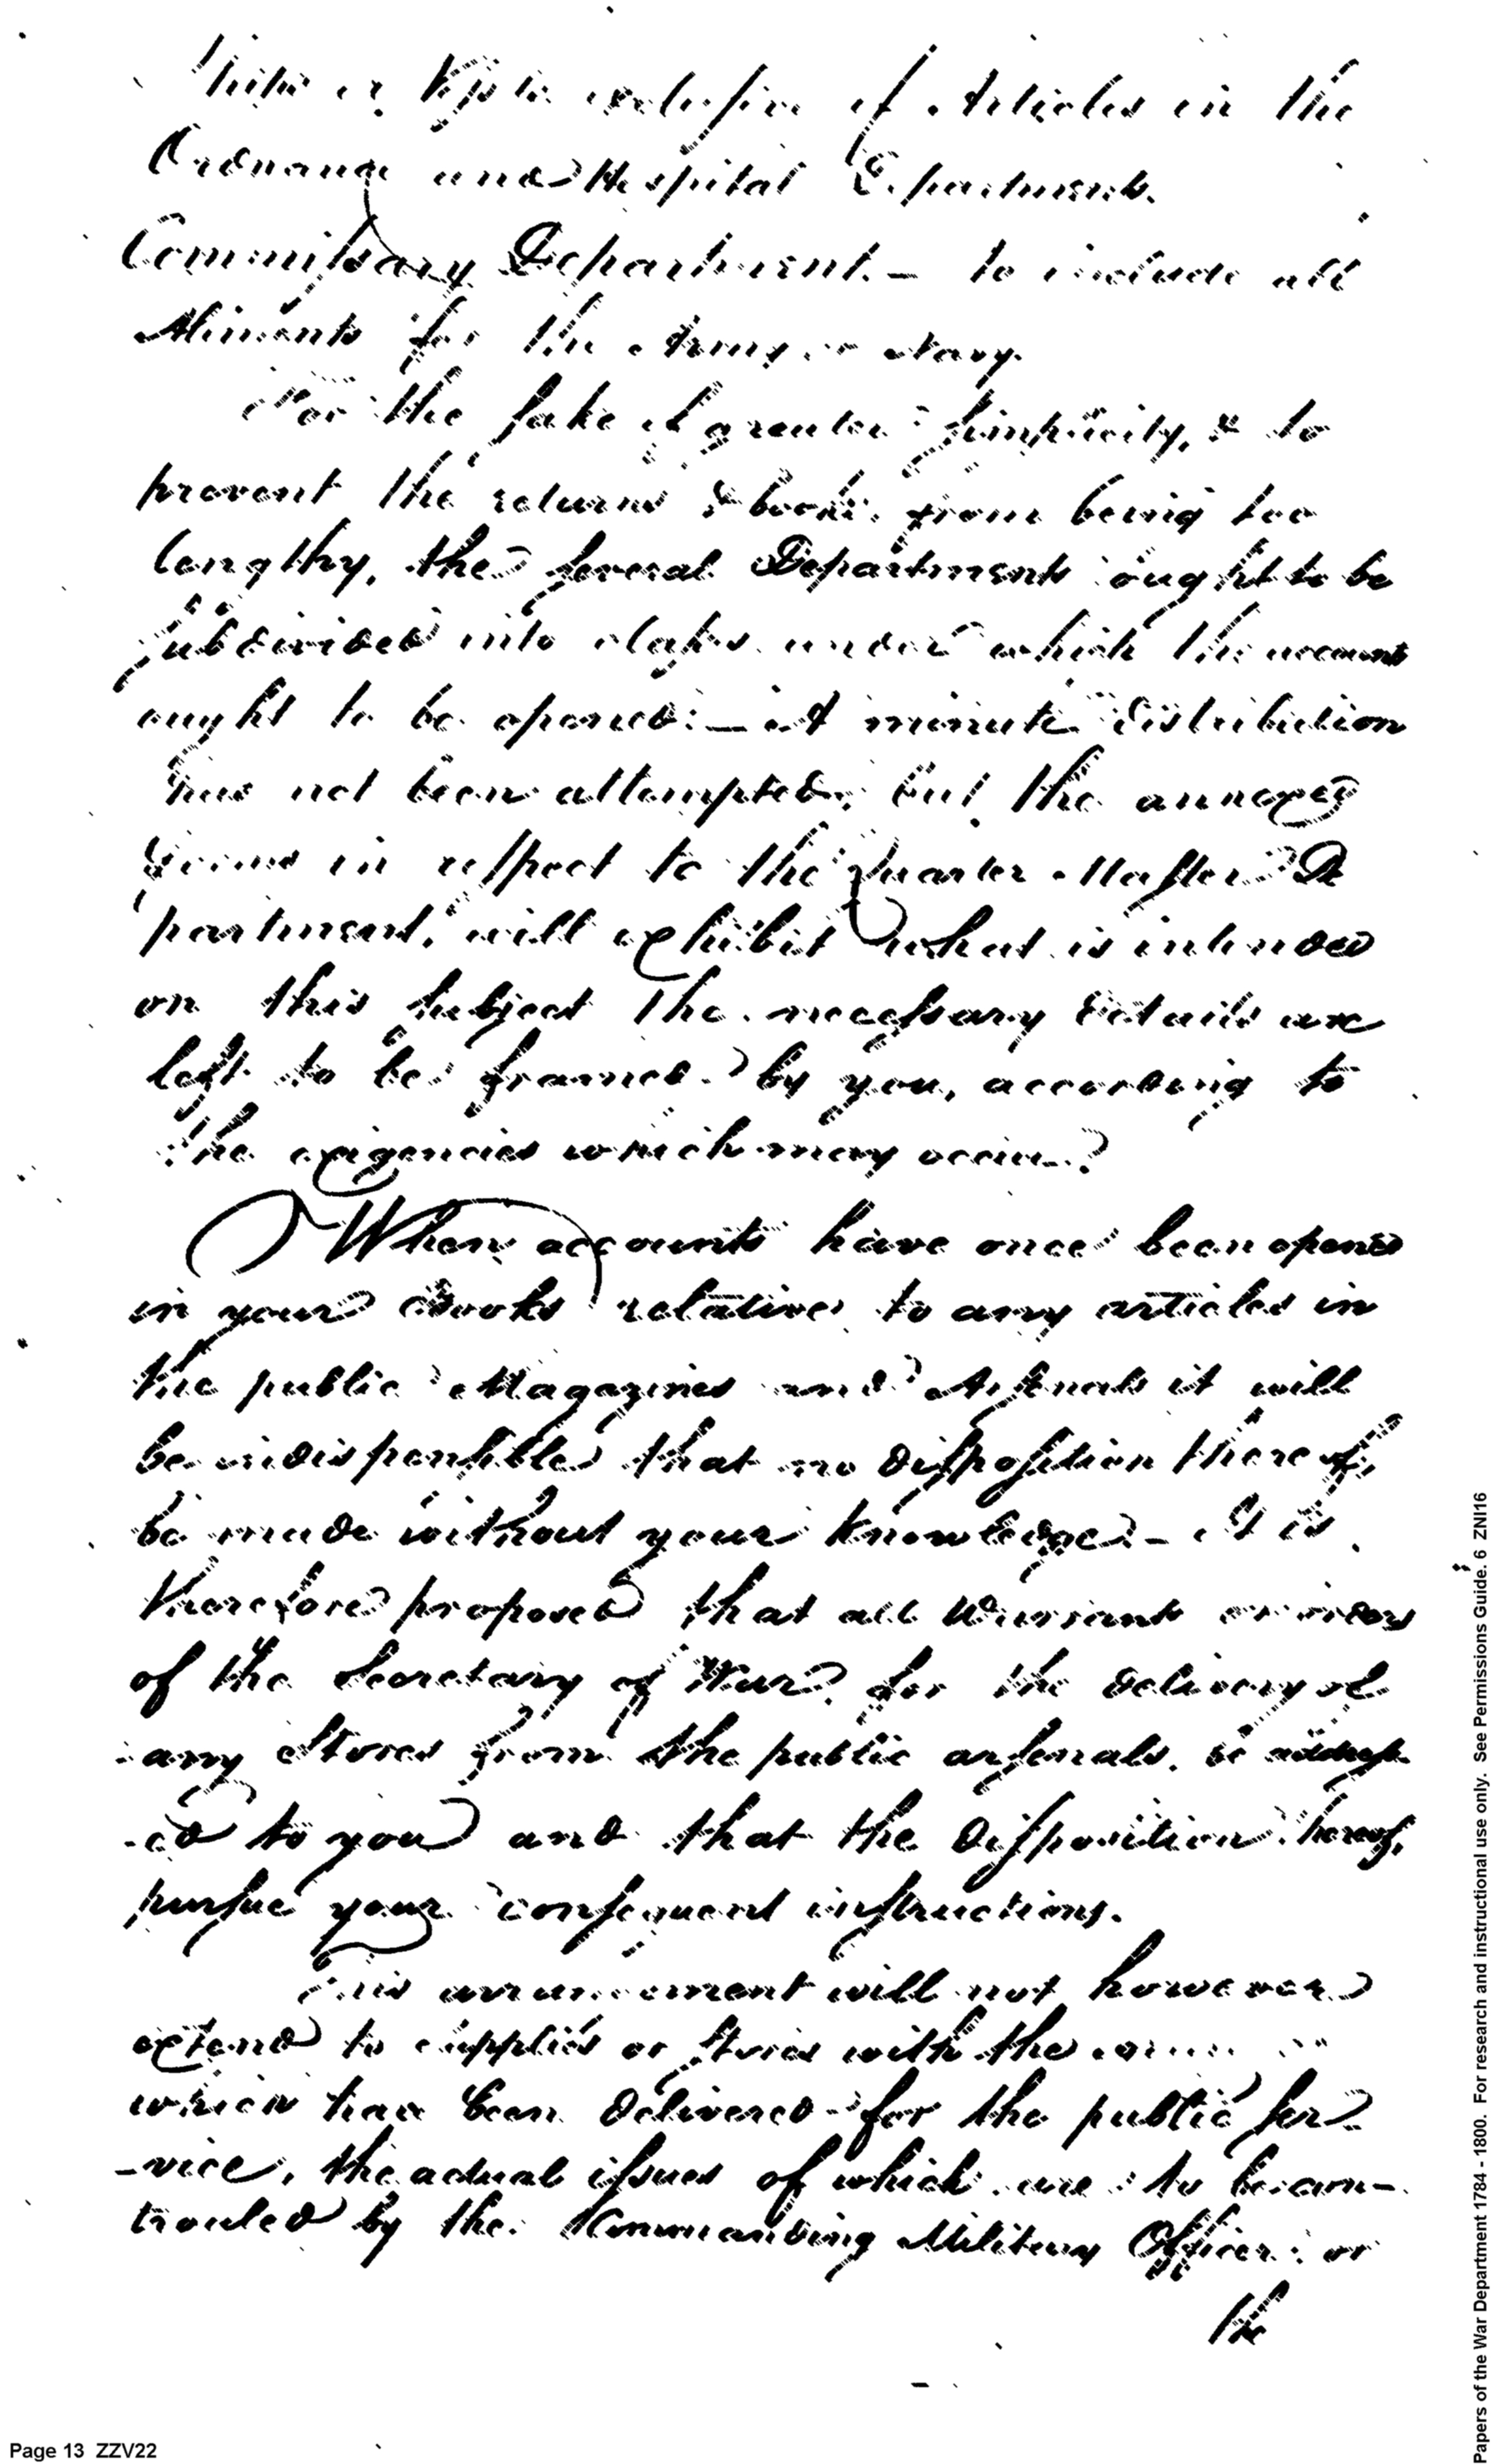 Ships or Vessels exclusive of Articles in the
Ordnance and Hospital Departments.
Commissary Department. – to include all
Aliments for the Army or Navy.
For the sake of greater simplicity, & to
prevent the returns & books from being too
lengthy, the several Departments ought to be
subdivided into classes under which the accounts
ought to be opened: – A minute distribution
has not been attempted, but the annexed
forms in respect to the Quarter Master De
partment, will exhibit what is intended
on this subject The necessary details are
left to be framed by you, according to
the exigencies which may occur.
When accounts have once been opened
in your Books relative to any articles in
the public Magazines and Arsenals it will
be indispensible that no disposition thereof,
be made without your knowledge – It is
therefore proposed that all Warrants or orders
of the Secretary of War for the delivery of
any Stores from the public arsenals, be address
-ed to you and that the disposition thereof,
pursue your consequent instructions.
This arrangement will not however
extend to supplies or stores with the
which have been delivered for the public ser
-vice, the actual issues of which are to be con-
trouled by the Commanding Military Officer: or
the
Page 13 ZZV22
Papers of the War Department 1784 - 1800. For research and instructional use only. See Permissions Guide. 6 ZNI16